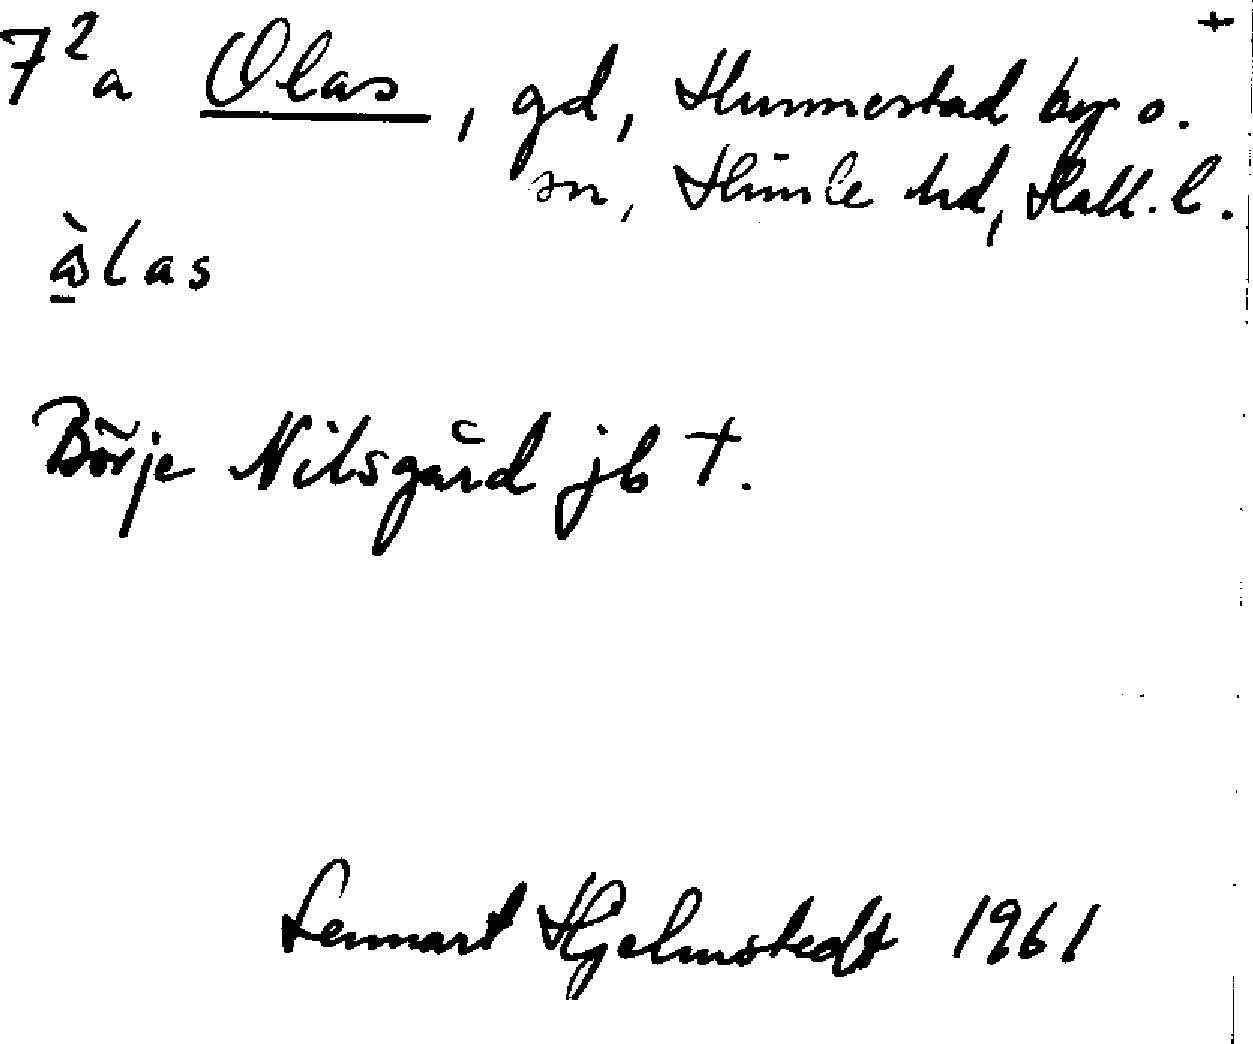 +
7²a Olas, gd, Hunnestad by o.
sn, Himle hd, Hall. l.
Börje Nilsgård jb †.
Lennart Hjelmstedt 1961